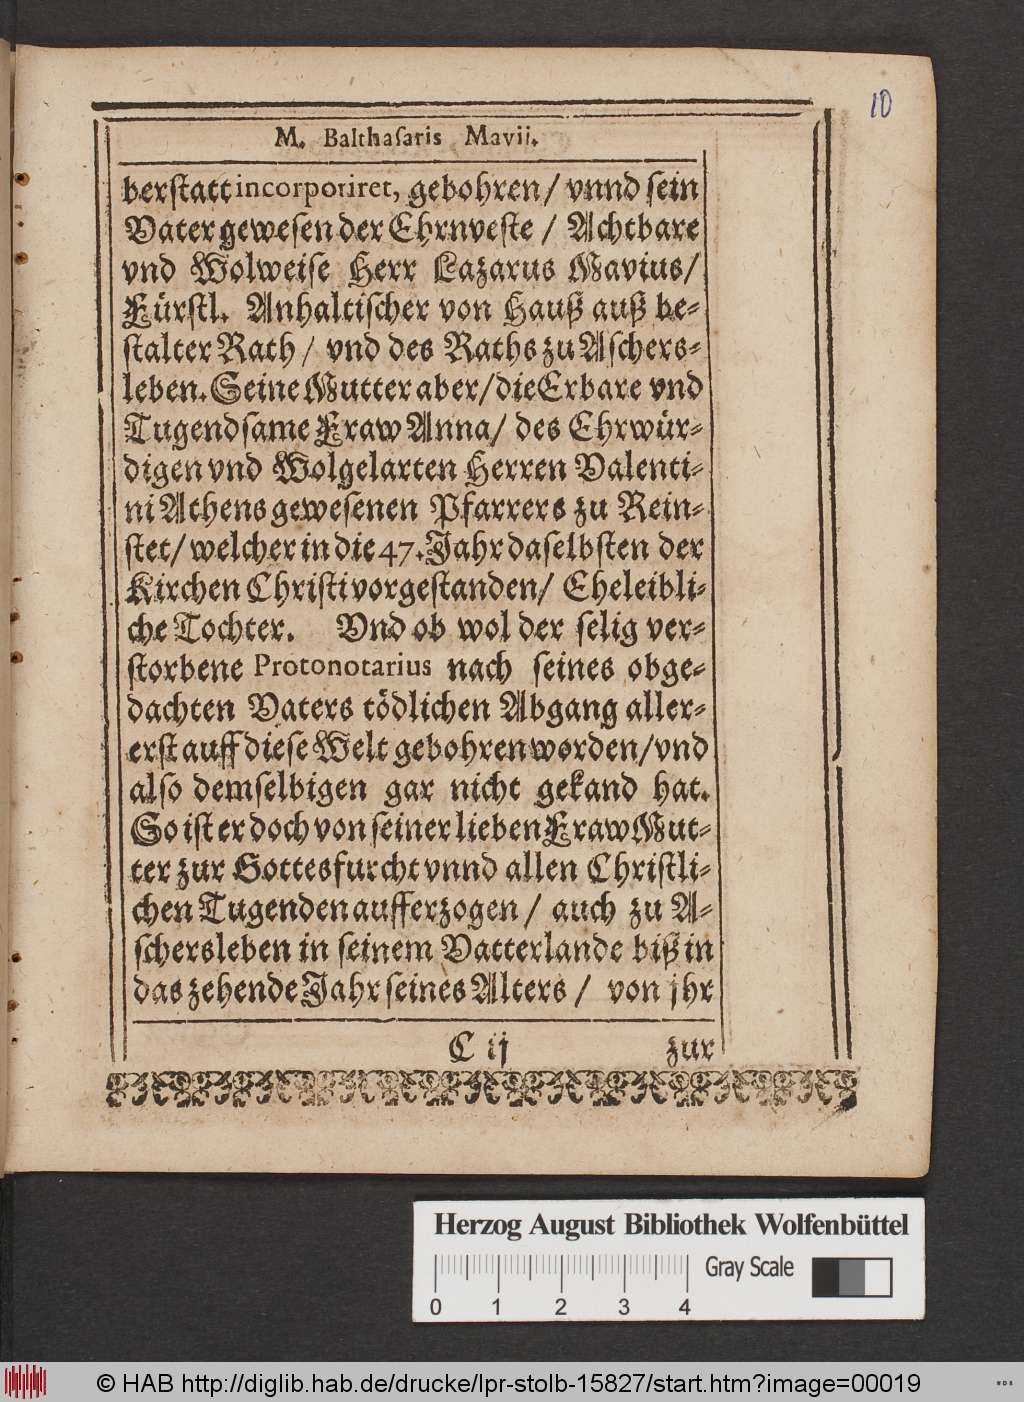 10
M. Balthasaris Mavii.
berstatt incorporiret, gebohren / vnnd sein
Vater gewesen der Ehrnveste / Achtbare
vnd Wolweise Herr Lazarus Mavius /
Fürstl. Anhaltischer von Hauß auß be-
stalter Rath / vnd des Raths zu Aschers-
leben. Seine Mutter aber / die Erbare vnd
Tugendsame Fraw Anna / des Ehrwür-
digen vnd Wolgelarten Herren Valenti-
ni Athens gewesenen Pfarrers zu Rein-
stet / welcher in die 47. Jahr daselbsten der
Kirchen Christi vorgestanden / Eheleibli-
che Tochter. Vnd ob wol der selig ver-
storbene Protonotarius nach seines obge-
dachten Vaters tödlichen Abgang aller-
erst auff diese Welt gebohren worden / vnd
also demselbigen gar nicht gekand hat.
So ist er doch von seiner lieben Fraw Mut-
ter zur Gottesfurcht vnnd allen Christli-
chen Tugenden aufferzogen / auch zu A-
schersleben in seinem Vatterlande biß in
das zehende Jahr seines Alters / von jhr
C ij zur
Herzog August Bibliothek Wolfenbüttel
Gray Scale
0 1 2 3 4
© HAB http://diglib.hab.de/drucke/lpr-stolb-15827/start.htm?image=00019